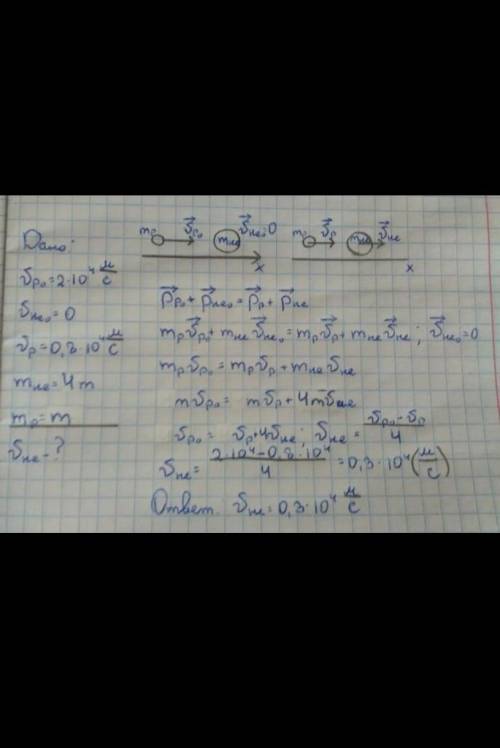 Дано:
υp₀=2·10⁴ м/с
υHe₀=0
υp=0,8·10⁴ м/с
mHe=4m
mp=m
υHe-?
mp υ⃗p₀ mHe υ⃗He₀=0
x
mp υ⃗p mHe υ⃗He
x
p⃗p₀+p⃗He₀=p⃗p+p⃗He
mpυ⃗p₀+mHeυ⃗He₀=mpυ⃗p+mHeυ⃗He; υ⃗He₀=0
mpυp₀=mpυp+mHeυHe
mυp₀=mυp+4mυHe
υp₀=υp+4υHe; υHe=(υp₀-υp)/4
υHe=(2·10⁴-0,8·10⁴)/4=0,3·10⁴(м/с)
Ответ. υHe=0,3·10⁴ м/с